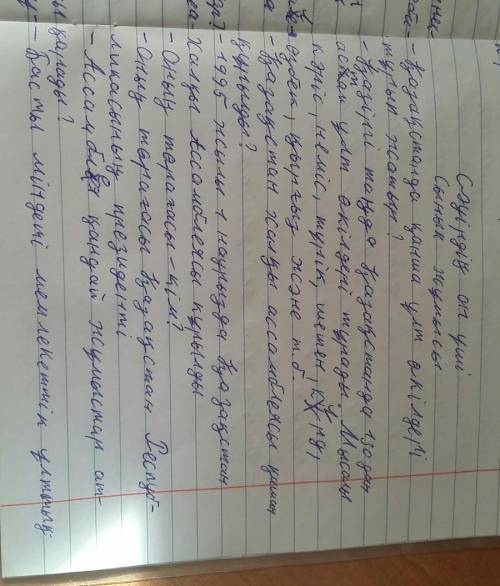 Сәуірдің он үші
Сынып жұмысы
- Қазақстанда қанша ұлт өкілдері
тұрып жатыр?
- Қазіргі таңда Қазақстанда 130 дан
астам ұлт өкілдері тұрады. Мысалы
кәріс, неміс, түрік, шешен, күрд,
өзбек, қырғыз және т.б.
- Қазақстан халқы ассамблеясы қашан
құрылды?
- 1995 жылы 1 наурызда Қазақстан
Халқы Ассамблеясы құрылды
- Оның төрағасы - кім?
- Оның төрағасы Қазақстан Респуб-
ликасының президенті
- Ассамблея қандай жұмыстар ат-
қарады?
- Басты міндеті мемлекеттік ұлттық